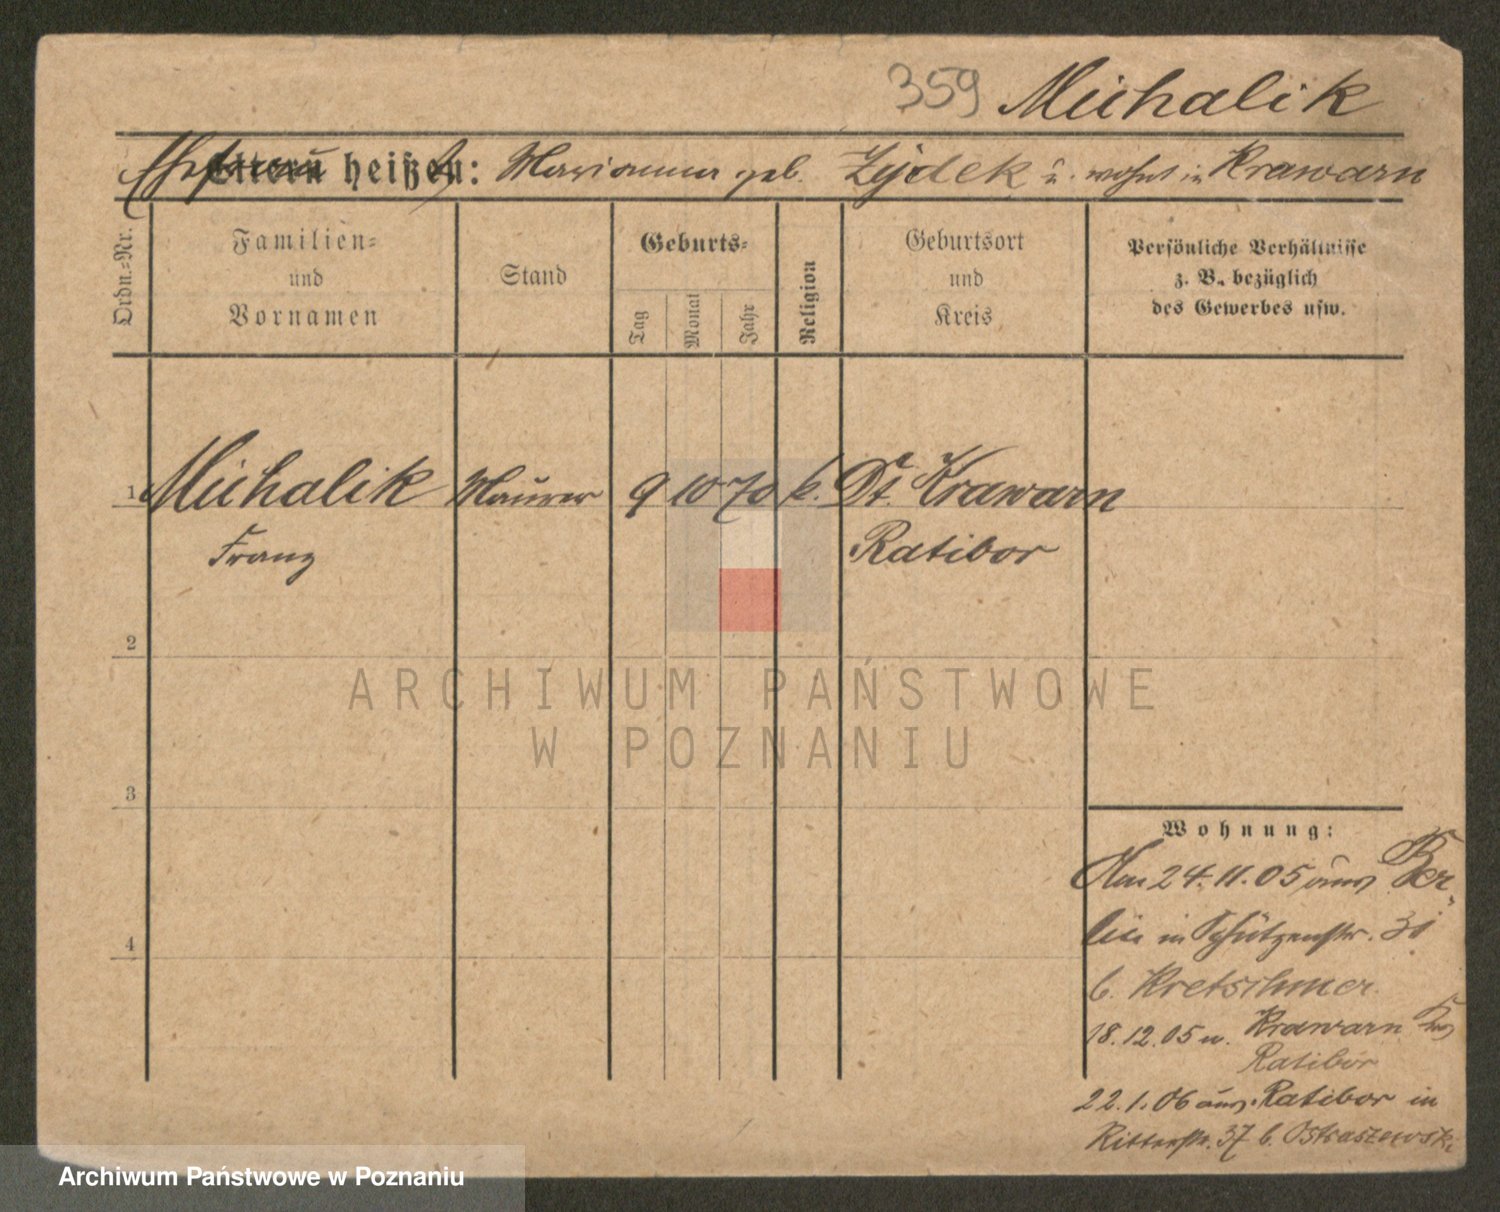 359 Michalik
Ehefrau Eltern heißen: Marianna geb. Zydek u. wohnt in Krawarn
Ordn.-Nr.
Familien-
und
Vornamen
Stand
Geburts-
Tag
Monat
Jahr
Religion
Geburtsort
und
Kreis
Persönliche Verhältnisse
z. B. bezüglich
des Gewerbes usw.
1 Michalik Maurer 9 10 70 k. Dt. Krawarn
Franz Ratibor
2
3
4
Wohnung:
Am 24.11.05 aus Ber-
lin in Schützenstr. 31
b. Kretschmer.
18.12.05 n. Krawarn Krs
Ratibor
22.1.06 aus Ratibor in
Ritterstr. 37 b. Ostraszewski
ARCHIWUM PAŃSTWOWE
W POZNANIU
Archiwum Państwowe w Poznaniu